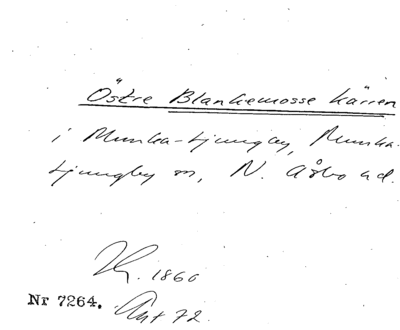 Östre Blankemosse kärren
i Munka-Ljungby, Munka-
Ljungby sn, N. Åsbo hd.
1860
Nr 7264. Akt 72.